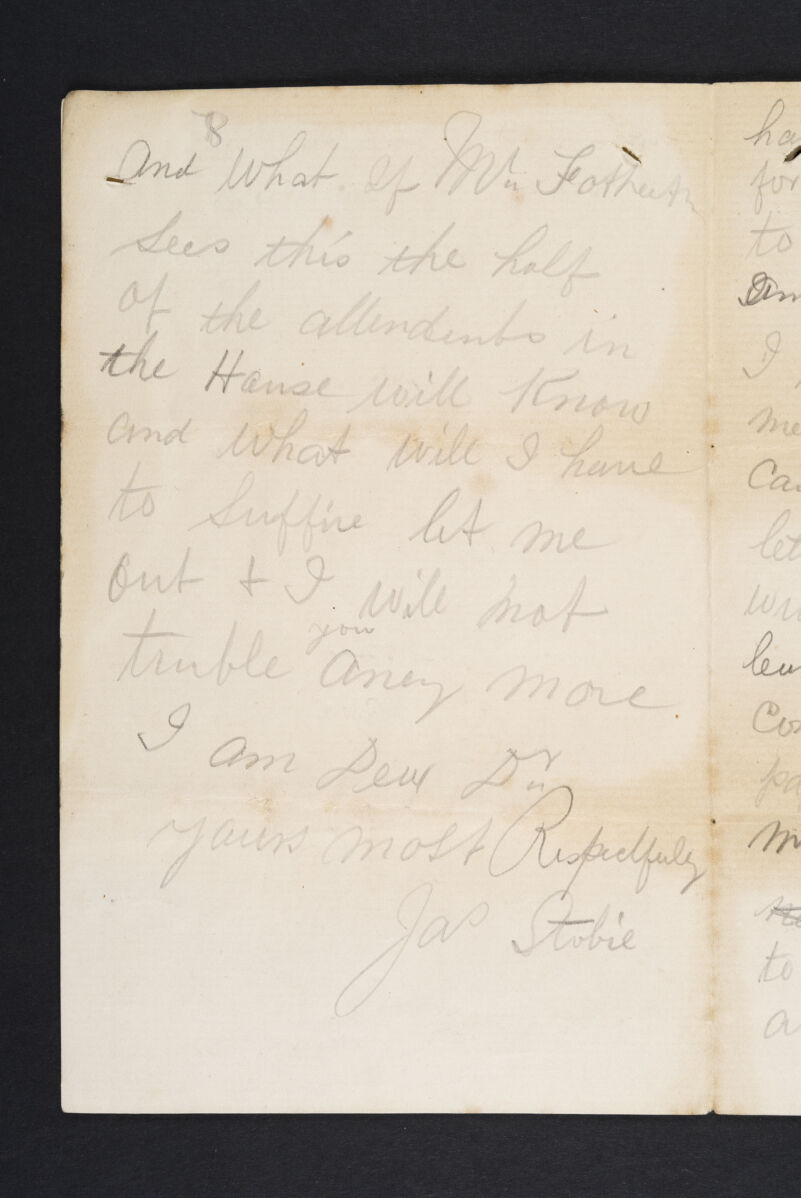 8
And What if Mr
Sees this the half
of the attendents in
the House will Know
and What Will I have
to Suffire let me
out + I will not
truble you Aney more
I am Dear Dr
yours most Respectfuly
Jas Stobie
ha
for
to
I
me
Ca
let
Co
pa
to
a